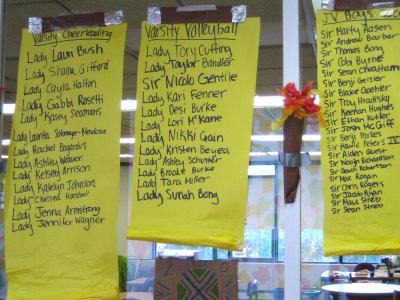 Varsity Cheerleading
Lady Lauri Bush
Lady Shaina Gifford
Lady Cayla Halton
Lady Gabbi Rosetti
Lady Kasey Seamans
Lady Laurita
Lady Rachel Bogardus
Lady Ashley Weaver
Lady Kelsey Arrison
Lady Katelyn Johnson
Lady Chelsea Marshall
Lady Jenna Armstrong
Lady Jennifer Wagner
Varsity Volleyball
Lady Tory Cutting
Lady Taylor Bandler
Sir Nicolo Gentile
Lady Kari Fenner
Lady Desi Burke
Lady Lori McKane
Lady Nikki Gain
Lady Kristen Beyea
Lady Ashley Schuster
Lady Brooke Burke
Lady Tara Miller
Lady Sunah Bong
JV Boys
Sir Marty Aasen
Sir Andrew Barber
Sir Thomas Bang
Sir Cobi Byrne
Sir Sean Cheatham
Sir Benji Geisler
Sir Blake Goehler
Sir Troy Hradisky
Sir Keenan Hughes
Sir Ethan Kutler
Sir Josh McGiff
Sir Benji Parkes
Sir Howie Peters
Sir Aiden
Sir Woojin Richardson
Sir Gavin Robertson
Sir Max Rogan
Sir Chris Rogers
Sir Jacob Ryan
Sir Max Streib
Sir Sean Streib